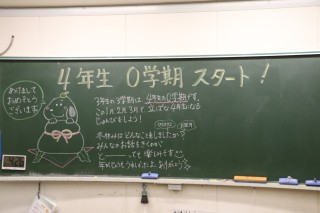 4年生 0学期 スタート!
あけまして
おめでとう
ございます!
3年生の3学期は、4年生の0学期です。
この1月2月3月で、立派な4年生になる
じゅんびをしよう!
冬休みはどんなことをしましたか?
みんなのお話をきくのが
と〜〜っても楽しみです
年がじょうもうれしかったよ。ありがとう